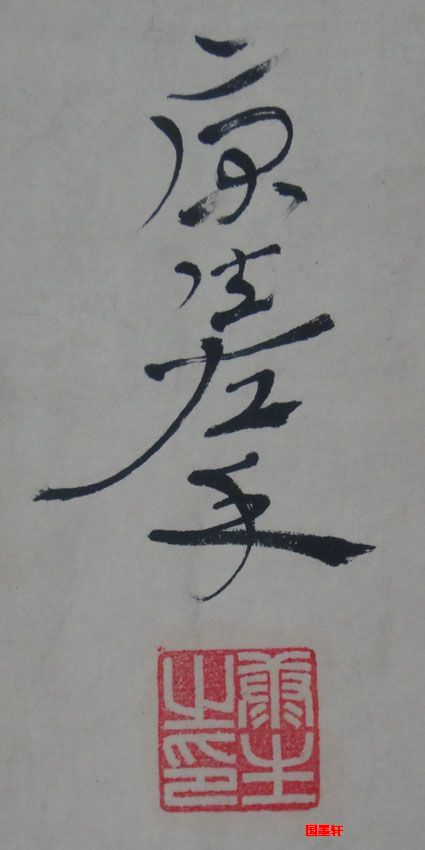 康生左手
康生
之印
国墨轩